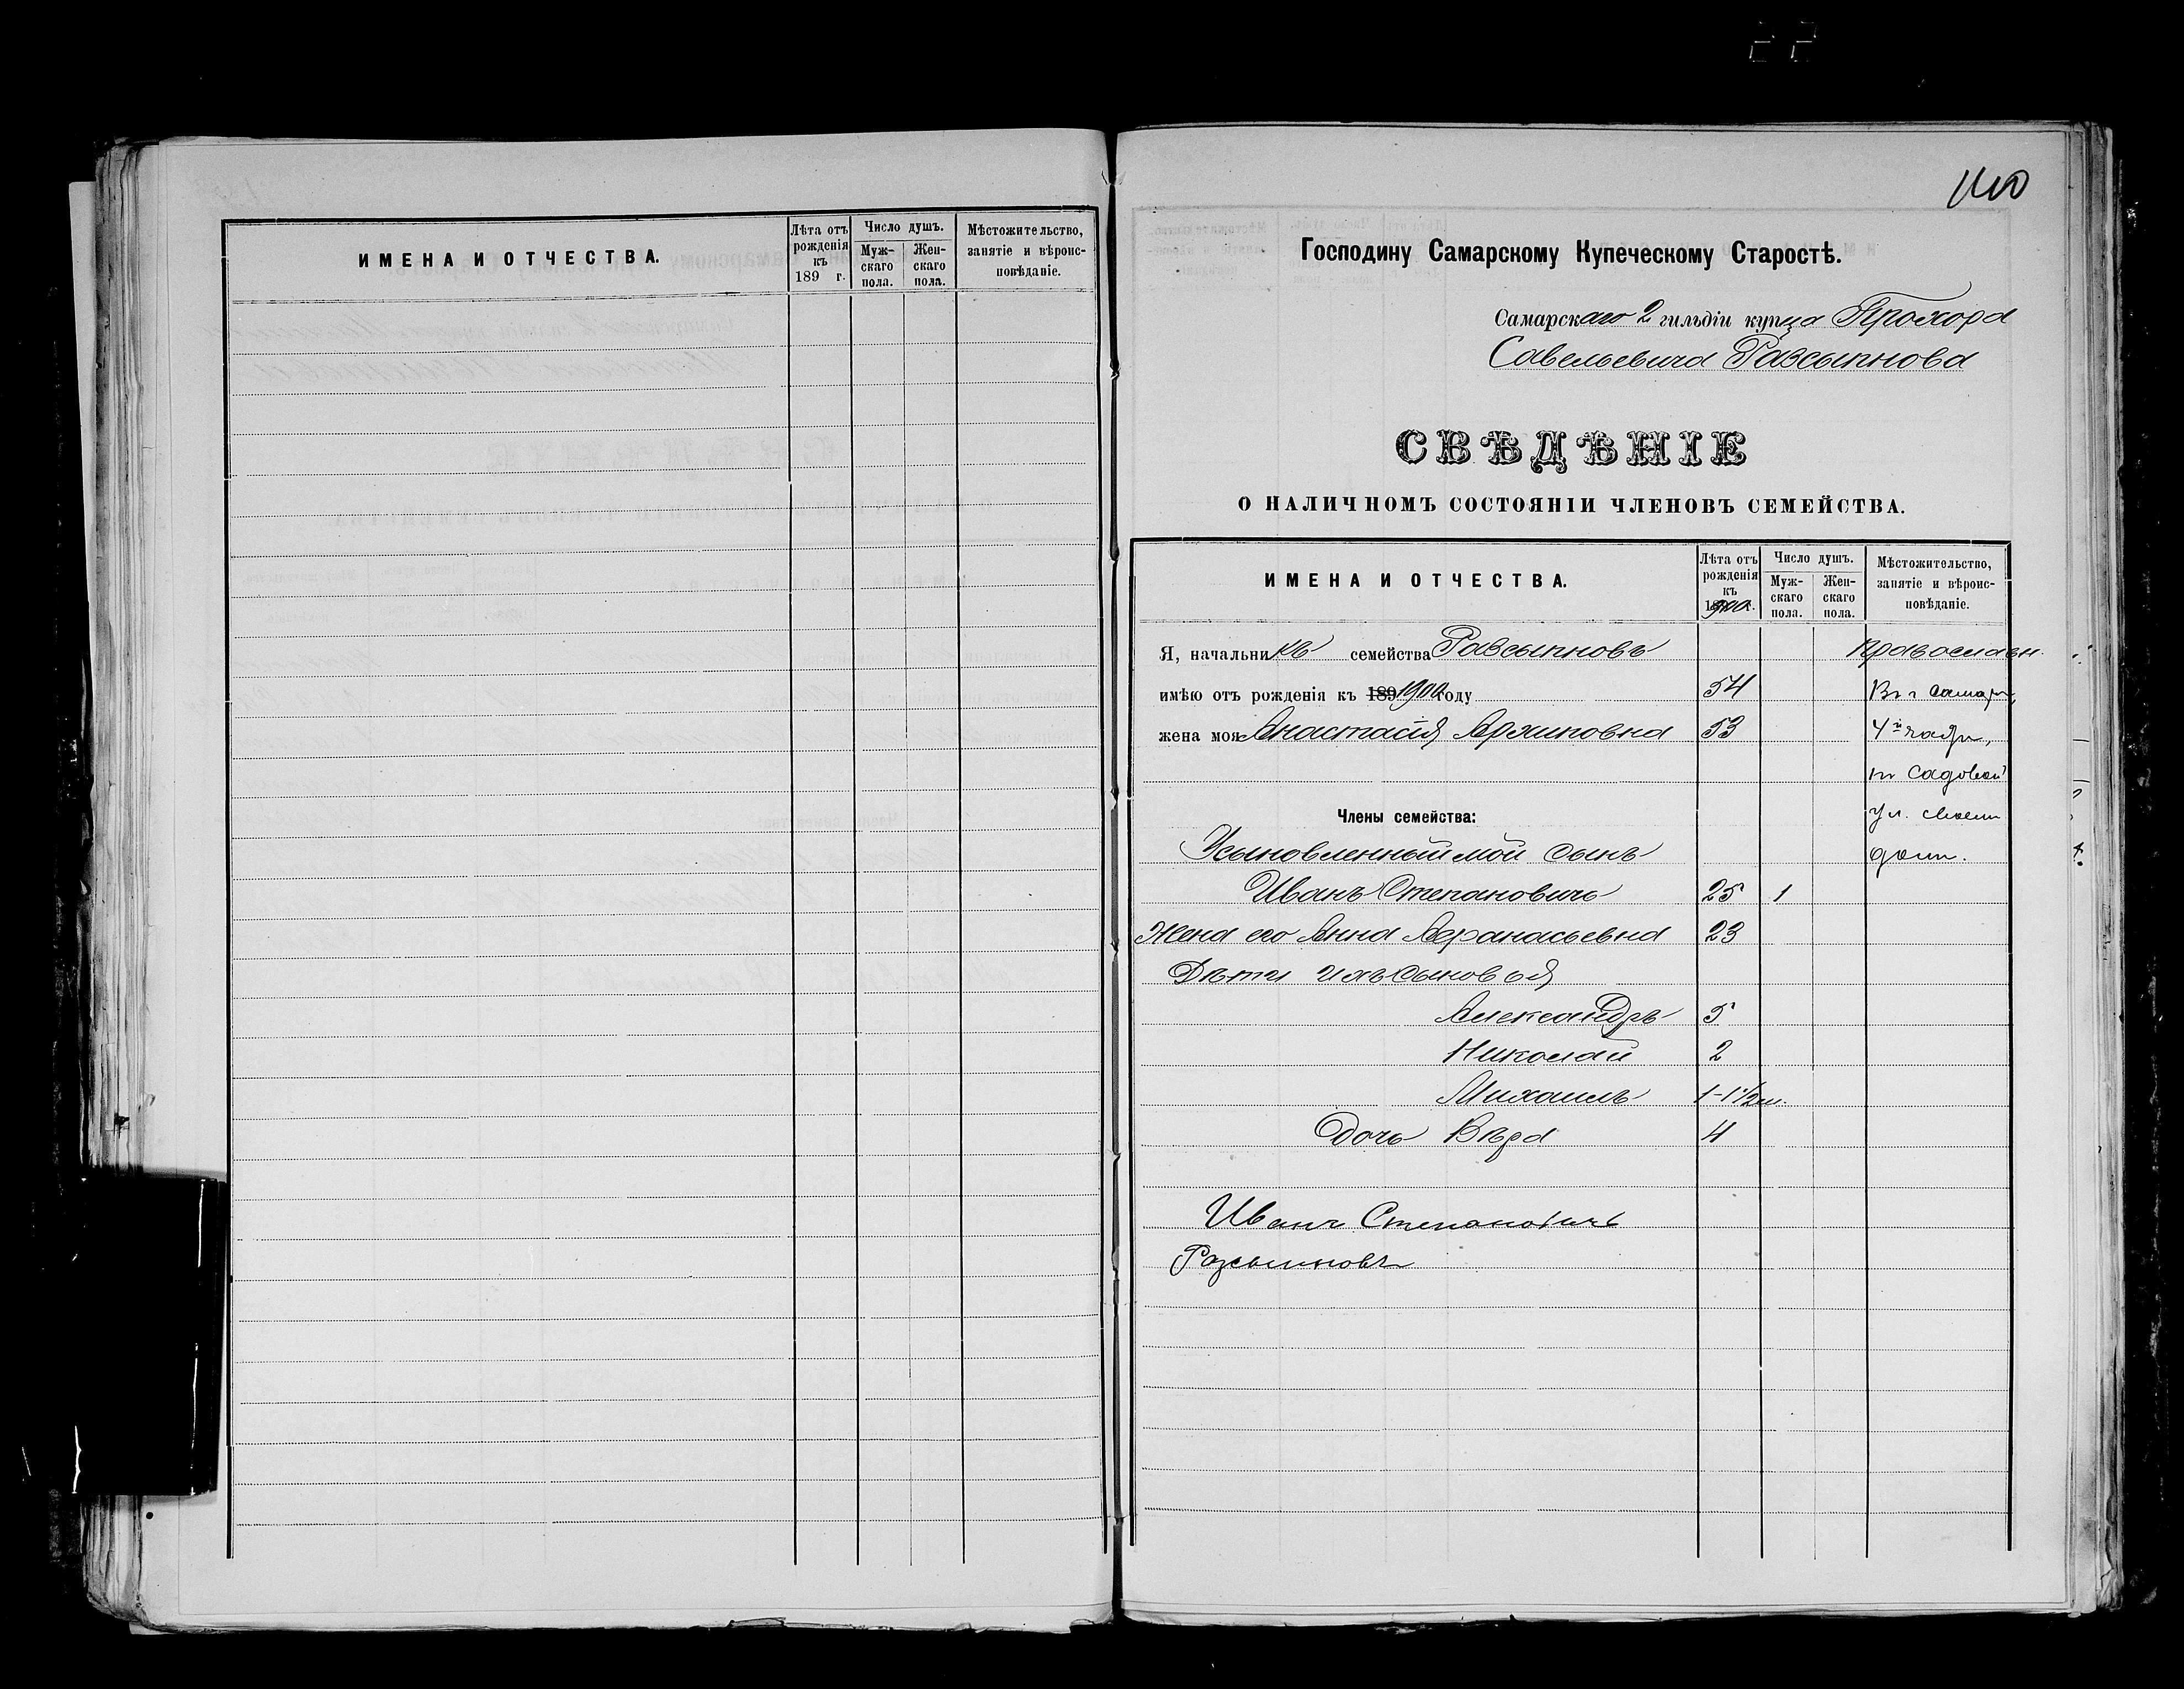 ИМЕНА И ОТЧЕСТВА.
Лѣта отъ рожденія къ 189 г.
Число душъ.
Муж-скаго пола.
Жен-скаго пола.
Мѣстожительство, занятіе и вѣроис-повѣданіе.
140
Господину Самарскому Купеческому Старостѣ.
Самарскаго 2 гильдіи купца Прохора
Савельевича Разсыпнова
СВѢДѢНІЕ
О НАЛИЧНОМЪ СОСТОЯНІИ ЧЛЕНОВЪ СЕМЕЙСТВА.
ИМЕНА И ОТЧЕСТВА.
Лѣта отъ рожденія къ 1900 г.
Число душъ.
Муж-скаго пола.
Жен-скаго пола.
Мѣстожительство, занятіе и вѣроис-повѣданіе.
Я, начальникъ семейства Разсыпновъ Православн.
имѣю отъ рожденія къ 189 1900 году 54 Въ г Самарѣ,
жена моя Анастасія 53 4й части,
по Садовой
Члены семейства: ул. своемъ
Усыновленный мой сынъ домѣ.
Иванъ Степановичъ 25 1
Жена его Анна Афанасьевна 23
Дѣти ихъ сыновья
Александръ 5
Николай 2
Михаилъ 1-1 1/2 м.
Дочь Вѣра 4
Иванъ Степановичъ
Разсыпновъ